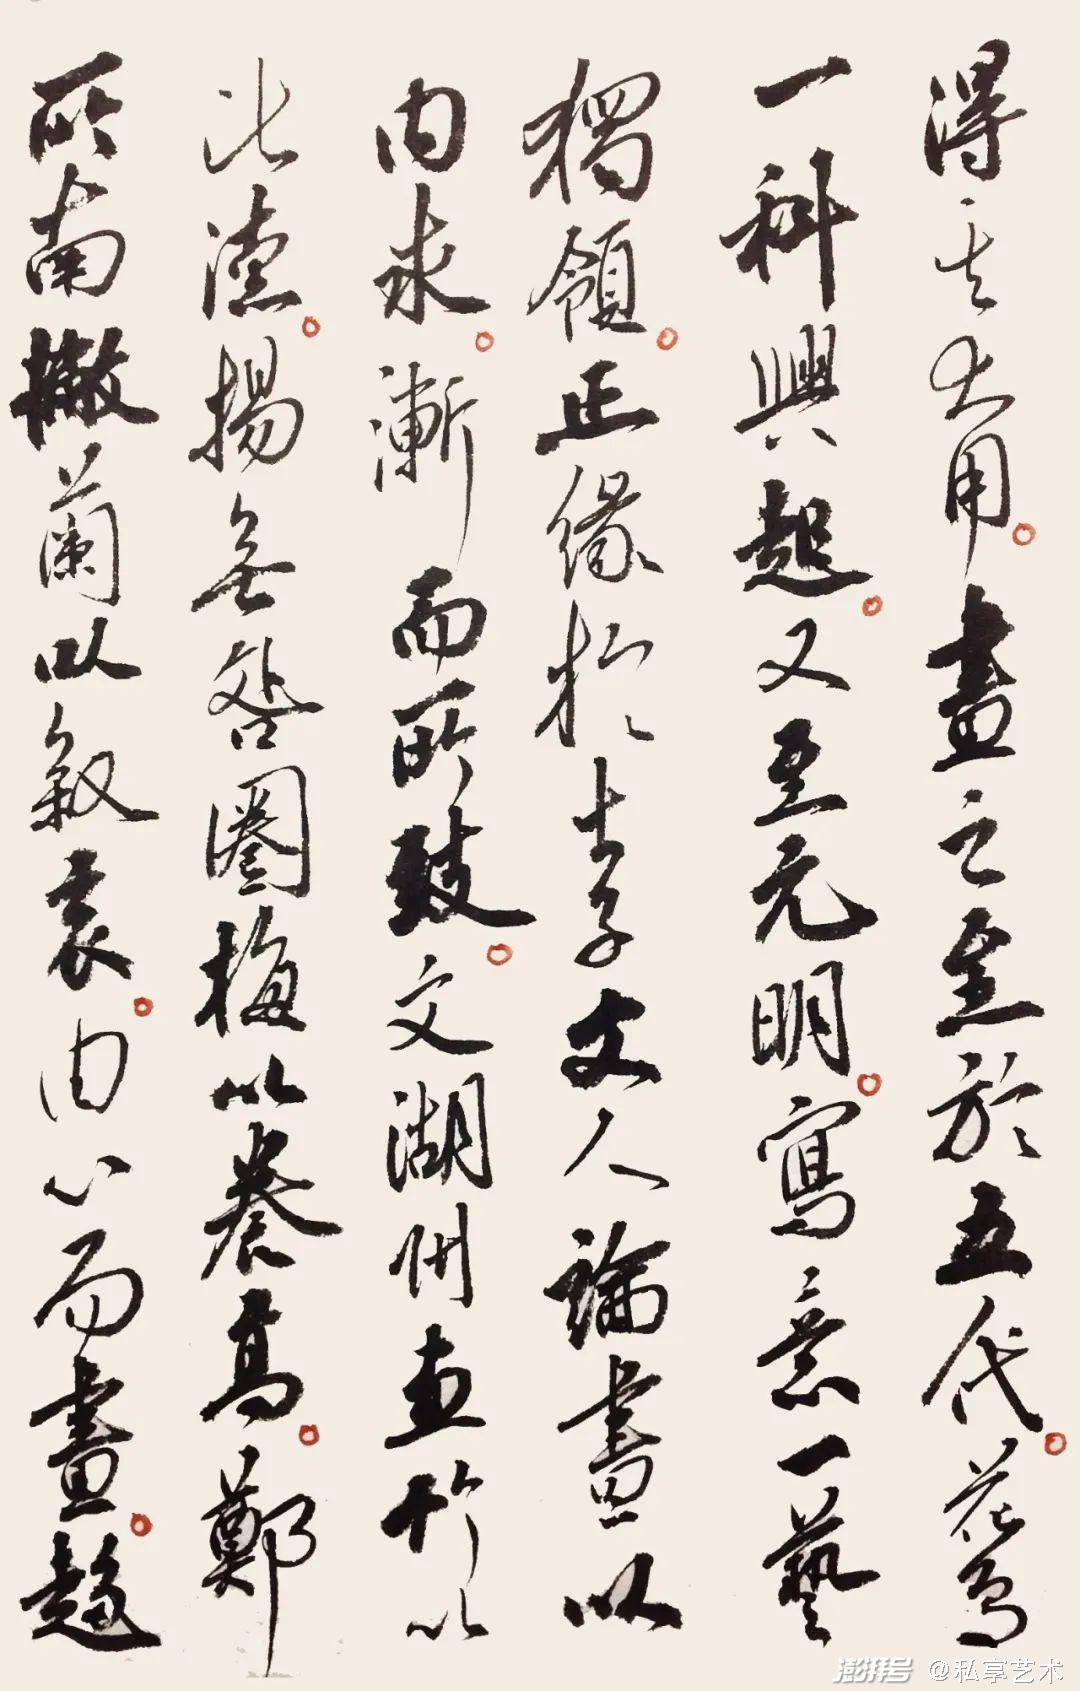 得其大用。畫之至於五代。花鳥
一科興起。又至元明。寫意一藝
獨領。正緣於士子文人論畫以
內求。漸而所致。文湖州畫竹以
比德。揚無咎圈梅以養高。鄭
所南撇蘭以敘衷。由心而畫。趙
澎湃号 @私享艺术